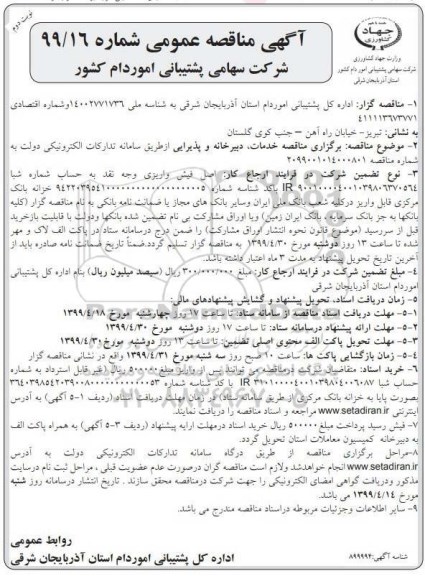 نوبت دوم
جهاد
کشاورزی
وزارت جهاد کشاورزی
شرکت سهامی پشتیبانی امور دام کشور
استان آذربایجان شرقی
آگهی مناقصه عمومی شماره ۹۹/۱۶
شرکت سهامی پشتیبانی اموردام کشور
۱- مناقصه گزار: اداره کل پشتیبانی اموردام استان آذربایجان شرقی به شناسه ملی ۱۴۰۰۲۷۷۱۷۳۶ وشماره اقتصادی
۴۱۱۱۱۳۶۷۳۷۷۱
به نشانی: تبریز- خیابان راه آهن – جنب کوی گلستان
۲- موضوع مناقصه: برگزاری مناقصه خدمات، دبیرخانه و پذیرایی ازطریق سامانه تدارکات الکترونیکی دولت به
شماره مناقصه ۲۰۹۹۰۰۱۰۱۴۰۰۰۸۰۱
۳- نوع تضمین شرکت در فرایند ارجاع کار: اصل فیش واریزی وجه نقد به حساب شماره شبا
IR ۹۰۰۱۰۰۰۰۴۰۰۱۰۳۹۸۰۶۳۷۰۵۶۴ باکد شناسه شماره خزانه بانک
مرکزی قابل واریز درکلیه شعب بانک ملی ایران وسایر بانک های مجاز یا ضمانت نامه بانکی به نام مناقصه گزار (کلیه
بانکها به جز بانک سرمایه و بانک ایران زمین) ویا اوراق مشارکت بی نام تضمین شده بانکها ودولت با قابلیت بازخرید
قبل از سررسید (موضوع قانون نحوه انتشار اوراق مشارکت) را ضمن درج درسامانه ستاد در پاکت الف لاک و مهر
شده تا ساعت ۱۳ روز دوشنبه مورخ ۱۳۹۹/۴/۳۰ به مناقصه گزار تسلیم گردد.ضمناً تاریخ ضمانت نامه صادره باید از
آخرین تاریخ تحویل پیشنهاد به مدت ۳ ماه اعتبار داشته باشد.
۴- مبلغ تضمین شرکت در فرایند ارجاع کار: مبلغ ۳۰۰/۰۰۰/۰۰۰ ریال (سیصد میلیون ریال) بنام اداره کل پشتیبانی
اموردام استان آذربایجان شرقی
۵- زمان دریافت اسناد، تحویل پیشنهاد و گشایش پیشنهادهای مالی:
۵-۱- مهلت دریافت اسناد مناقصه از سامانه ستاد: تا ساعت ۱۷ روز چهارشنبه مورخ ۱۳۹۹/۴/۱۸
۵-۲- مهلت ارائه پیشنهاد درسامانه ستاد: تا ساعت ۱۷ روز دوشنبه مورخ ۱۳۹۹/۴/۳۰
۵-۳- مهلت تحویل پاکت الف محتوی اصلی تضمین: تا ساعت ۱۳ روز دوشنبه مورخ ۱۳۹۹/۴/۳۰
۵-۴- زمان بازگشایی پاکت ها: ساعت ۱۰ صبح روز سه شنبه مورخ ۱۳۹۹/۴/۳۱ واقع در نشانی مناقصه گزار
۶- خرید اسناد: متقاضیان شرکت درمناقصه می توانند پس از واریز مبلغ ۵۰۰۰۰۰ ریال (غیر قابل استرداد به شماره
حساب شبا با کد شناسه شماره
بصورت پایا به خزانه بانک مرکزی از طریق سامانه ستاد) در زمان مهلت دریافت اسناد (ردیف ۵-۱ آگهی) به آدرس
اینترنتی www.setadiran.ir مراجعه و اسناد مناقصه را دریافت نمایند.
۷- فیش رسید پرداخت مبلغ ۵۰۰۰۰۰ ریال خرید اسناد درمهلت ارایه پیشنهاد (ردیف ۵-۳ آگهی) به همراه پاکت الف
به دبیرخانه کمیسیون معاملات استان تحویل گردد.
۸-مراحل برگزاری مناقصه از طریق درگاه سامانه تدارکات الکترونیکی دولت به آدرس
www.setadiran.ir انجام خواهدشد ولازم است مناقصه گران درصورت عدم عضویت قبلی ، مراحل ثبت نام درسایت
مذکور ودریافت گواهی امضای الکترونیکی را جهت شرکت درمناقصه محقق سازند . تاریخ انتشار درسامانه روز شنبه
مورخ ۱۳۹۹/۴/۱۴ می باشد.
۹- سایر اطلاعات وجزئیات مربوطه دراسناد مناقصه مندرج می باشد.
روابط عمومی
اداره کل پشتیبانی اموردام استان آذربایجان شرقی
شناسه آگهی: ۸۹۹۹۹۴